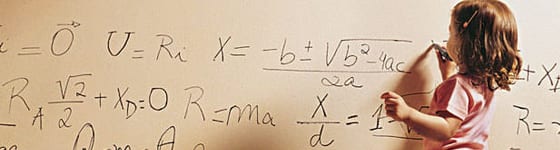 i = 0⃗ U = Ri X = (-b ± √(b²-4ac)) / 2a
R_A √2/2 + X_D = 0 R = ma X/d = 1-√ R =